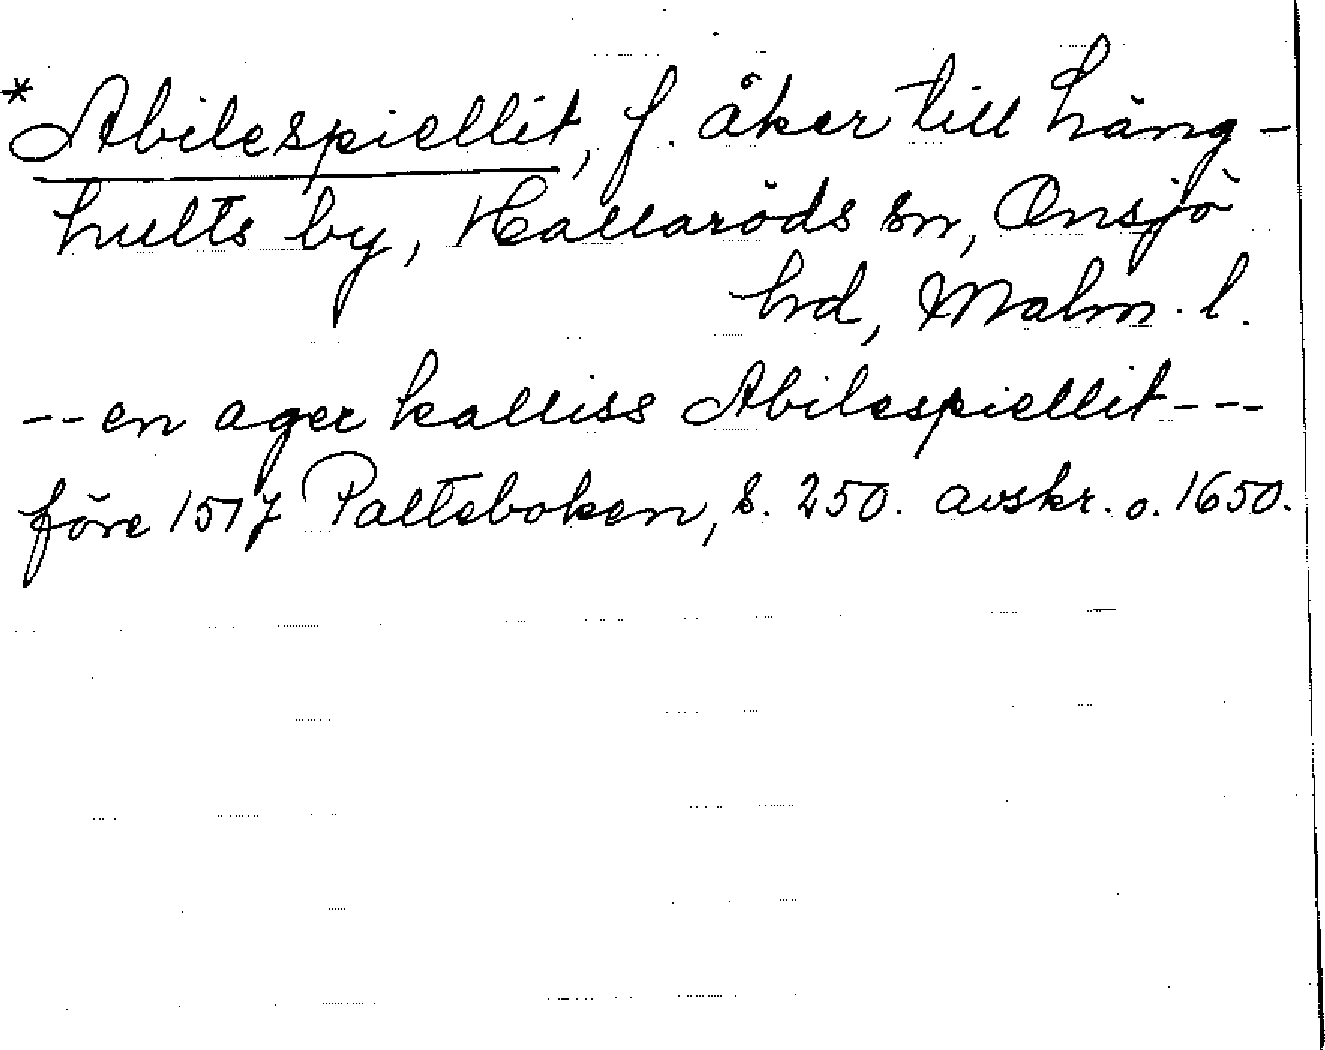 *Abilespiellit, f. åker till Häng-
hults by, Hallaröds sn, Onsjö
hrd, Malm. l.
-- en ager kalliss Abilespiellit ---
före 1517 Palteboken, s. 250. avskr. o. 1650.